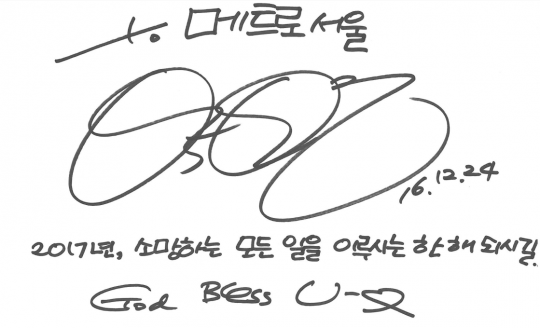 메트로서울
16.12.24
2017년, 소망하는 모든 일을 이루시는 한 해 되시길.
God Bless U-